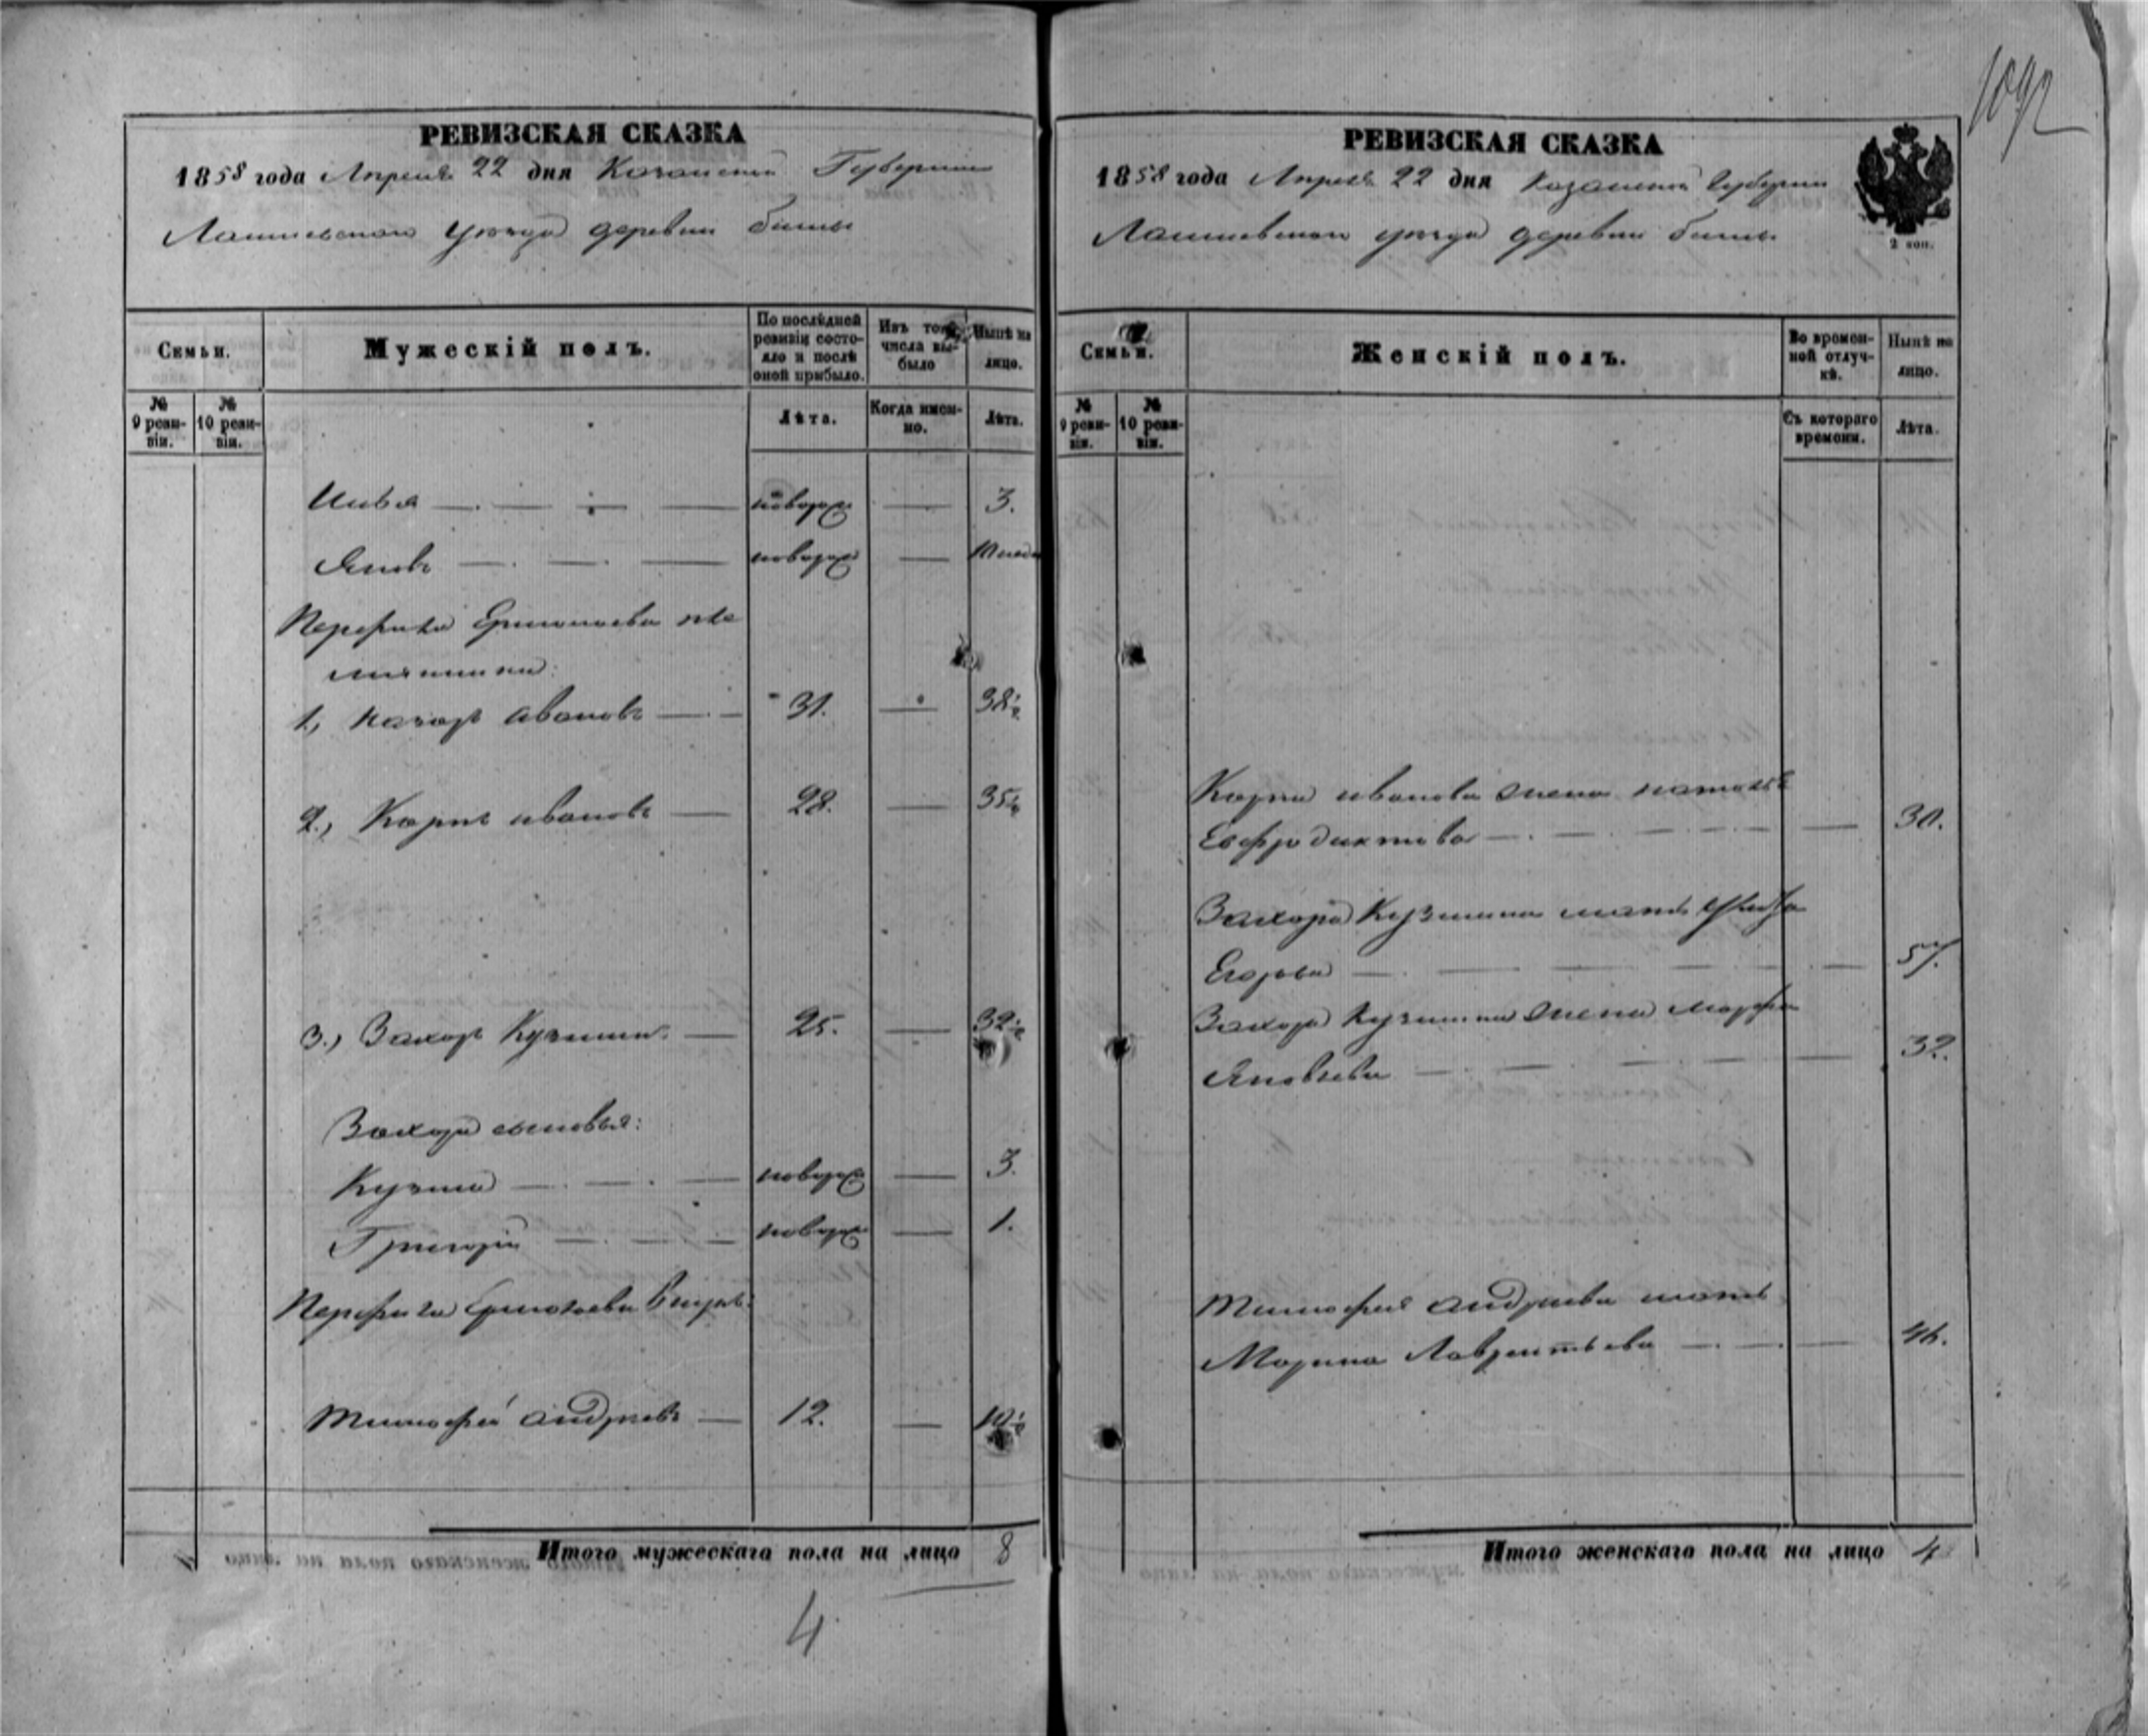 1092
РЕВИЗСКАЯ СКАЗКА
1858 года Апреля 22 дня Казанской Губернии
Лаишевскаго уезда деревни
Семьи.
Мужескій полъ.
По послѣдней ревизіи состояло и послѣ оной прибыло.
Изъ того числа выбыло
Нынѣ на лицо.
№ 9 ревизіи.
№ 10 ревизіи.
Лѣта.
Когда именно.
Лѣта.
Илья новорож 3.
Яковъ новорож
Перфила племянники:
1., Назаръ Ивановъ 31. 38½
2., Карпъ Ивановъ 28. 35½
3., Захаръ Кузминъ 25. 32½
Захара сыновья:
Кузма новорож 3.
Григорій новорож 1.
Перфила
Тимофей Андреевъ 12.
Итого мужескаго пола на лицо 8
4
РЕВИЗСКАЯ СКАЗКА
1858 года Апреля 22 дня Казанской Губернии
Лаишевскаго уезда деревни
2 коп.
Семьи.
Женскій полъ.
Во временной отлучкѣ.
Нынѣ на лицо.
№ 9 ревизіи.
№ 10 ревизіи.
Съ котораго времени.
Лѣта.
Карпа Иванова жена
30.
Захара Кузмина мать
Егорова 57.
Захара Кузмина жена Марфа
Яковлева 32.
Тимофея Андреева мать
Марина Лаврентьева 46.
Итого женскаго пола на лицо 4